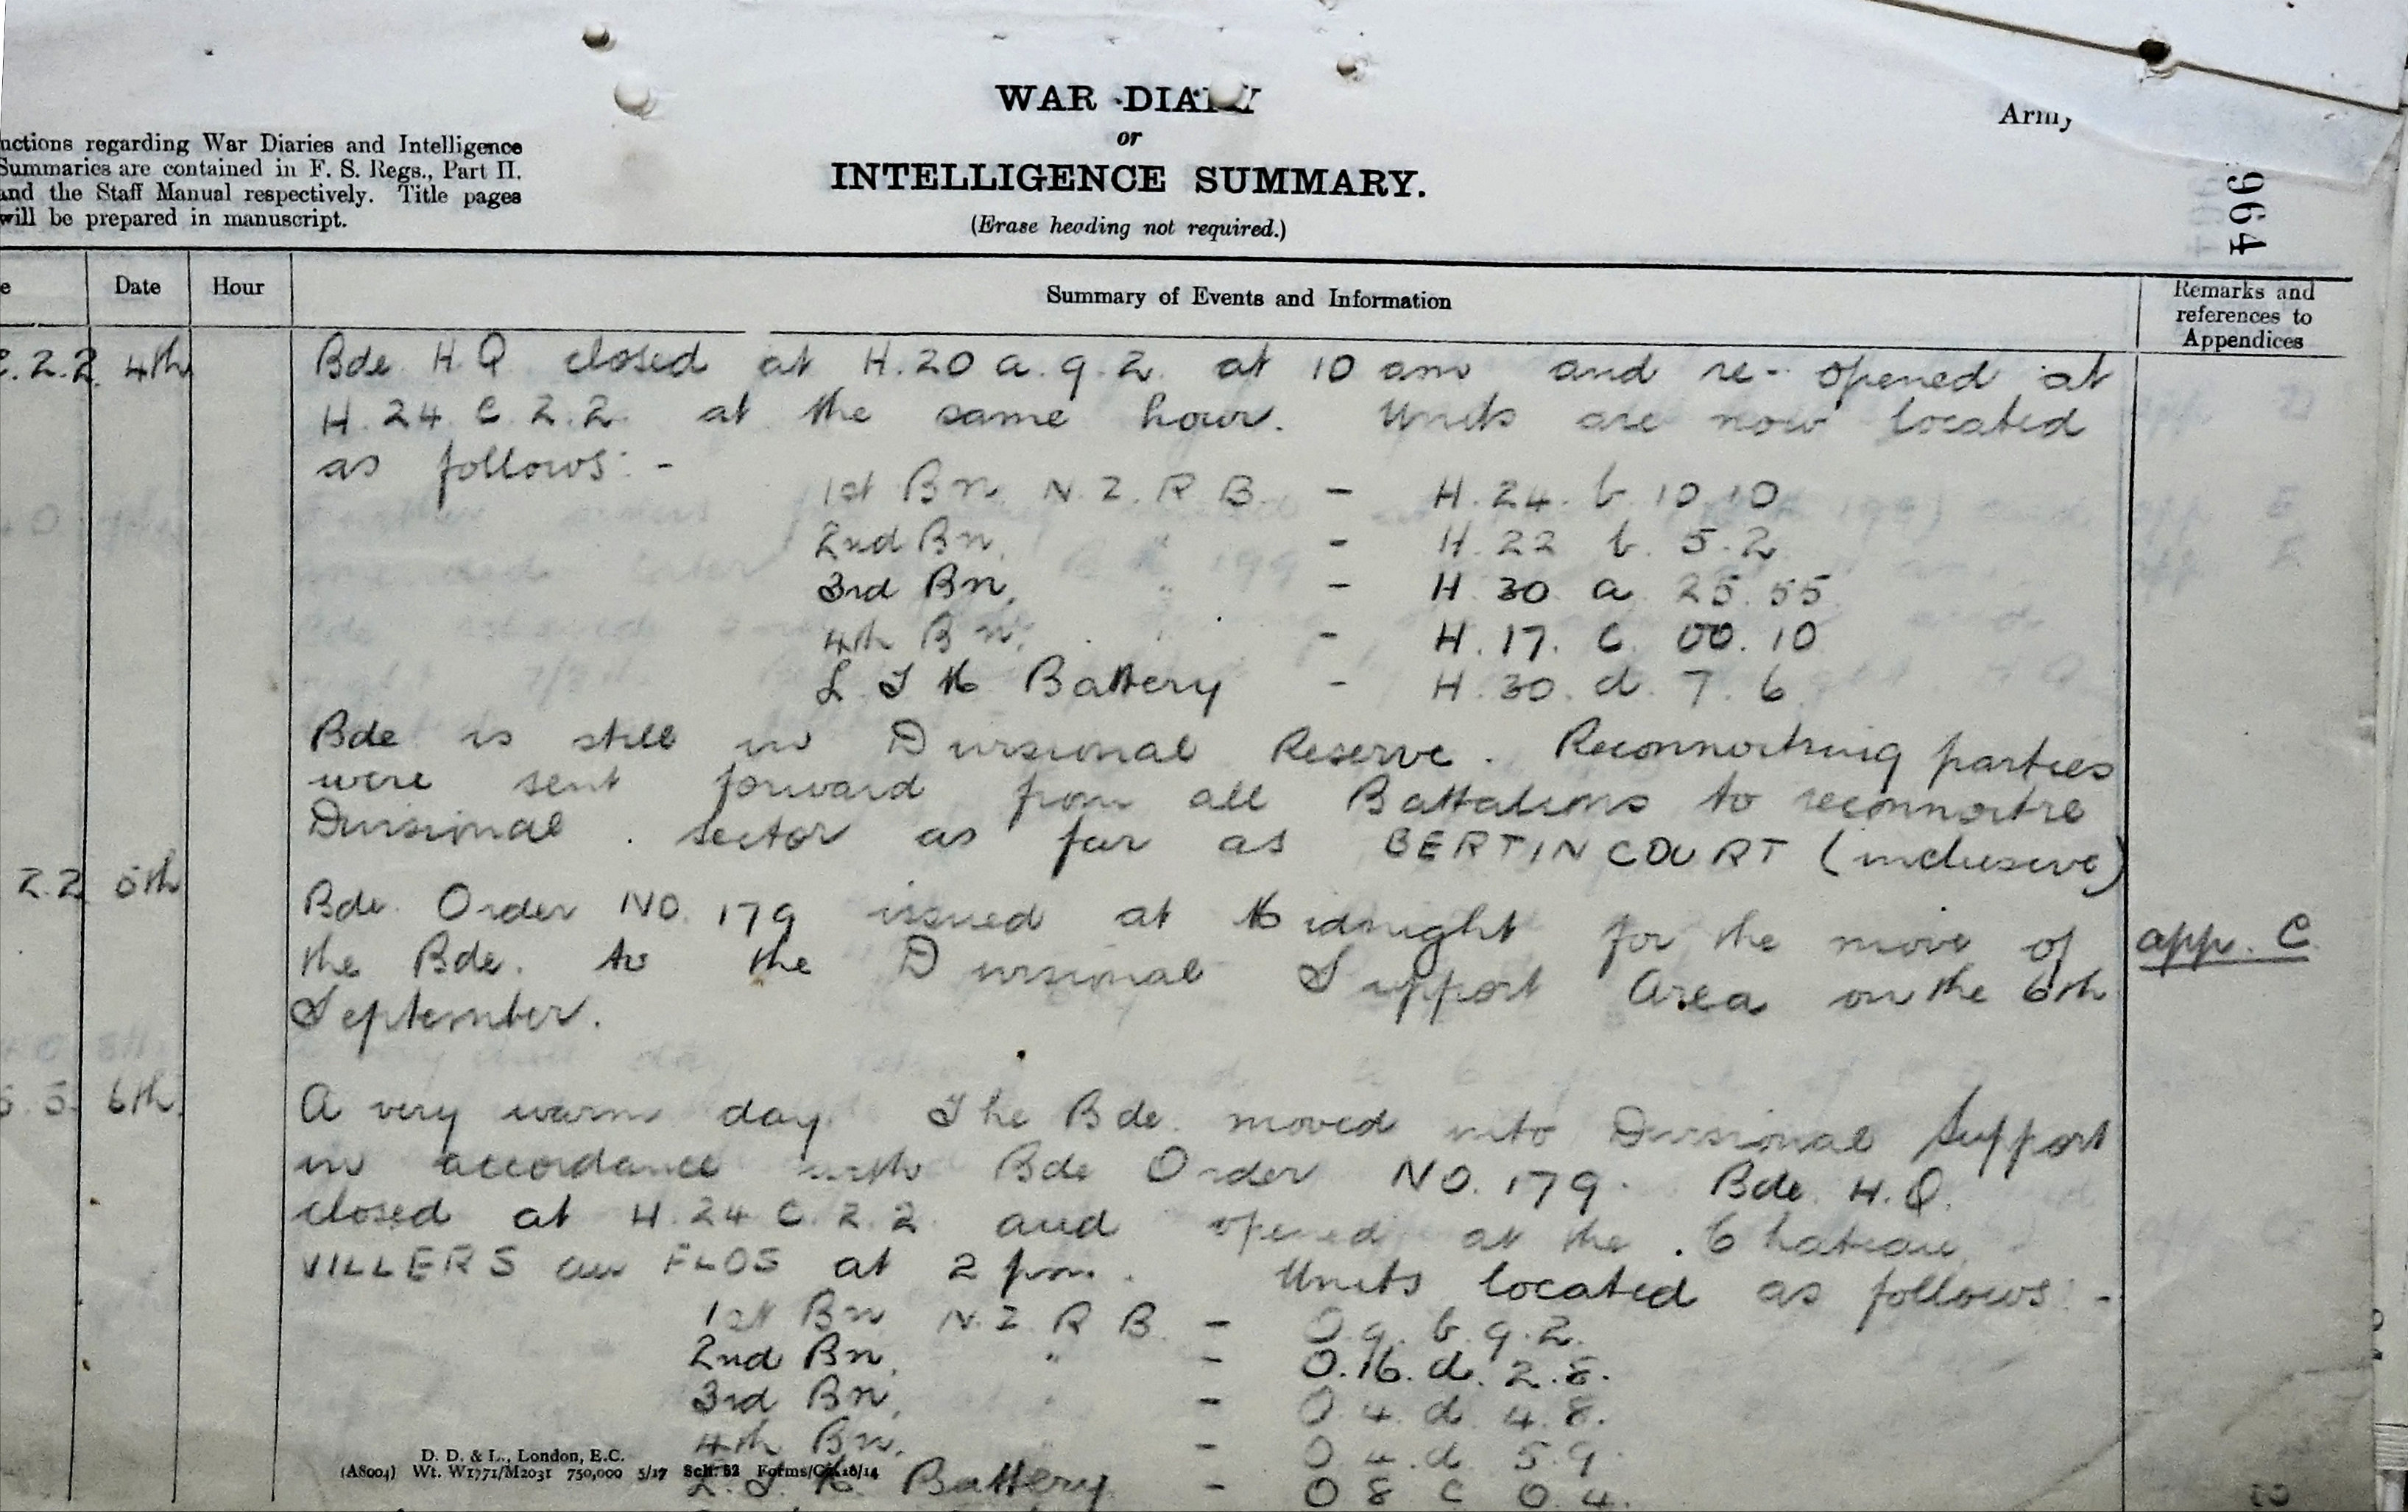 WAR DIARY
or
INTELLIGENCE SUMMARY.
(Erase heading not required.)
Army
964
uctions regarding War Diaries and Intelligence
Summaries are contained in F. S. Regs., Part II.
and the Staff Manual respectively. Title pages
will be prepared in manuscript.
e Date Hour Summary of Events and Information Remarks and
references to
Appendices
2.2 4th Bde H.Q closed at H.20 a.9.2. at 10 am and re-opened at
H.24 C.2.2. at the same hour. Units are now located
as follows:-
1st Bn N.Z.R B. - H.24. b 10.10
2nd Bn. " - H.22 b. 5.2
3rd Bn. " - H 30 a 25.55
4th Bn. " - H.17. C. 00.10
L T M Battery - H.30. d. 7.6
Bde is still in Divisional Reserve. Reconnoitring parties
were sent forward from all Battalions to reconnoitre
Divisional sector as far as BERTINCOURT (inclusive)
2.2 5th
Bde. Order NO. 179 issued at Midnight for the move of app. C.
the Bde. to the Divisional Support Area on the 6th
September.
5.5. 6th. A very warm day. The Bde. moved into Divisional Support
in accordance with Bde Order NO. 179. Bde. H.Q.
closed at H.24 C.2.2. and opened at the Chateau
VILLERS au FLOS at 2 pm. Units located as follows:-
1st Bn N.Z.R B. - O.9. b.9.2.
2nd Bn. " - O.16. d. 2.8.
3rd Bn. " - O.4. d. 4.8.
4th Bn. " - O.4. d. 5.9.
L.T.M. Battery - O 8 C 0.4.
D. D. & L., London, E.C.
(A8004) Wt. W1771/M2031 750,000 5/17 Sch. 52 Forms/C2118/14